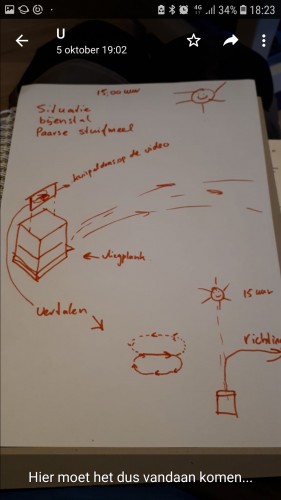 18:23
34%
4G
U
5 oktober 19:02
15:00 uur
Situatie
bijenstal
Paarse stuifmeel
kwispeldans op de video
vliegplank
vertalen
15 uur
richtin
Hier moet het dus vandaan komen...